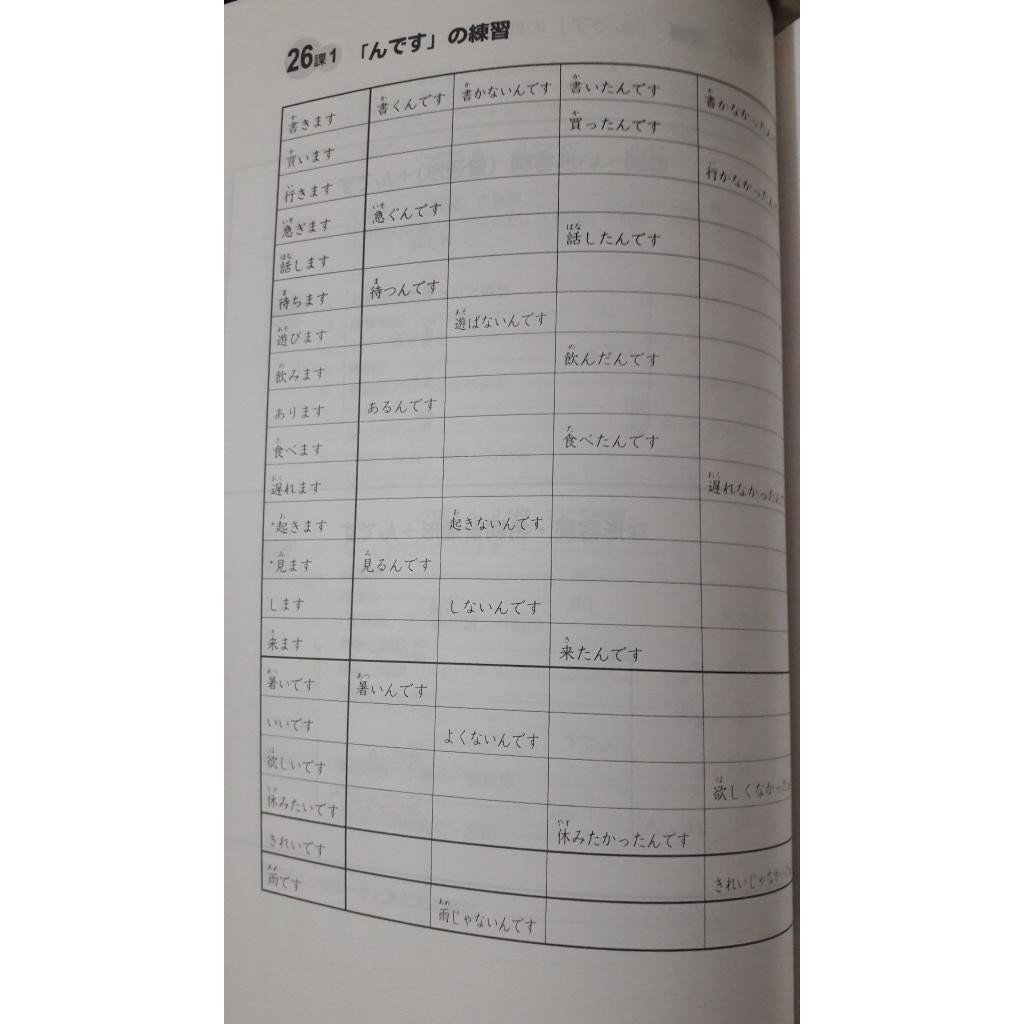 26課1 「んです」の練習
書きます 書くんです 書かないんです 書いたんです 書かなかったん
買います 買ったんです
行きます 行かなかったん
急ぎます 急ぐんです
話します 話したんです
待ちます 待つんです
遊びます 遊ばないんです
飲みます 飲んだんです
あります あるんです
食べます 食べたんです
遅れます 遅れなかったん
*起きます 起きないんです
*見ます 見るんです
します しないんです
来ます 来たんです
暑いです 暑いんです
いいです よくないんです
欲しいです 欲しくなかった
休みたいです 休みたかったんです
きれいです きれいじゃなかった
雨です 雨じゃないんです